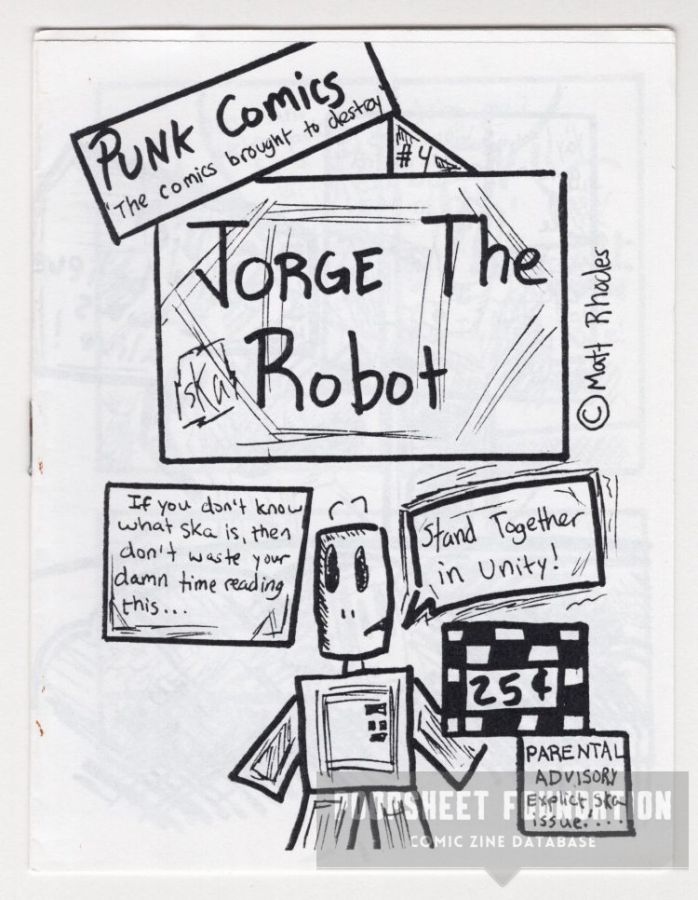 PUNK Comics
"The comics brought to destroy
#4
JORGE The
Robot
ska
© Matt Rhodes
If you don't know
what ska is, then
don't waste your
damn time reading
this...
Stand Together
in Unity!
25¢
PARENTAL
ADVISORY
Explicit Ska
issue....
FOUNDATION
COMIC ZINE DATABASE